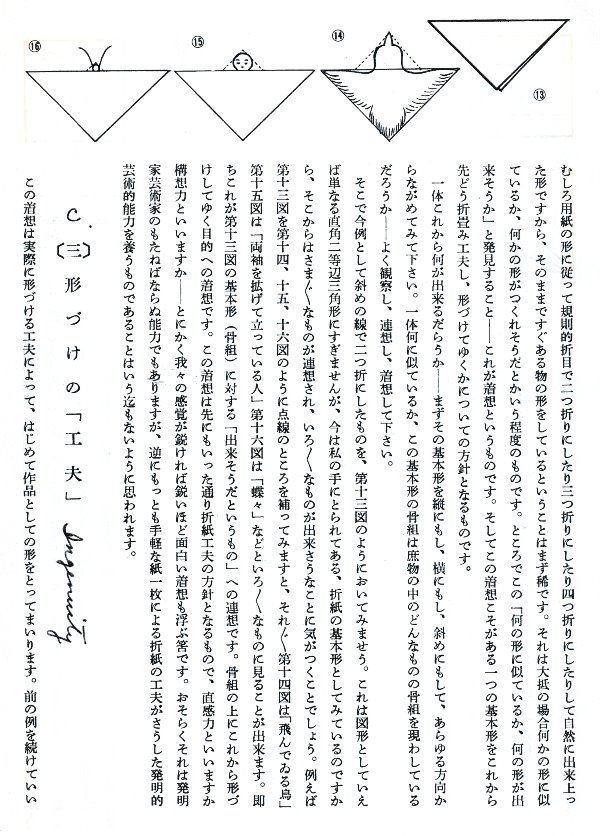 ⑬
⑭
⑮
⑯
むしろ用紙の形に従って規則的折目で二つ折りにしたり三つ折りにしたり四つ折りにしたりして自然に出来上っ
た形ですから、そのままですぐある物の形をしているということはまず稀です。それは大抵の場合何かの形に似
ているか、何かの形がつくれそうだとかいう程度のものです。ところでこの「何の形に似ているか、何の形が出
来そうか」と発見すること――これが着想というものです。そしてこの着想こそがある一つの基本形をこれから
先どう折畳み工夫し、形づけてゆくかについての方針となるものです。
一体これから何が出来るだらうか――まずその基本形を縦にもし、横にもし、斜めにもして、あらゆる方向か
らながめてみて下さい。一体何に似ているか、この基本形の骨組は庶物の中のどんなものの骨組を現わしている
だろうか――よく観察し、連想し、着想して下さい。
そこで今例として斜めの線で二つ折にしたものを、第十三図のようにおいてみませう。これは図形としていえ
ば単なる直角二等辺三角形にすぎませんが、今は私の手にとられてある、折紙の基本形としてみているのですか
ら、そこからはさま〲なものが連想され、いろ〳〵なものが出来さうなことに気がつくことでしょう。例えば
第十三図を第十四、十五、十六図のように点線のところを補ってみますと、それ〲第十四図は「飛んでゐる鳥」
第十五図は「両袖を拡げて立っている人」第十六図は「蝶々」などといろ〳〵なものに見ることが出来ます。即
ちこれが第十三図の基本形（骨組）に対する「出来そうだというもの」への連想です。骨組の上にこれから形づ
けしてゆく目的への着想です。この着想は先にもいった通り折紙工夫の方針となるもので、直感力といいますか
構想力といいますか――とにかく我々の感覚が鋭ければ鋭いほど面白い着想も浮ぶ筈です。おそらくそれは発明
家芸術家のもたねばならぬ能力でもありますが、逆にもっとも手軽な紙一枚による折紙の工夫がさうした発明的
芸術的能力を養うものであることはいう迄もないように思われます。
C.〔三〕形づけの「工夫」 Ingenuity
この着想は実際に形づける工夫によって、はじめて作品としての形をとってまいります。前の例を続けていい